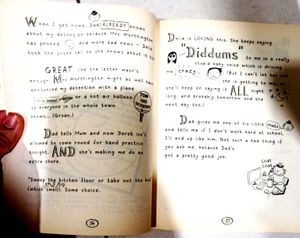 When I get home, Dad ALREADY knows
about my detention because Mrs Worthington
has phoned and more bad news - Delia
took the call
GREAT
Mrs Worthington might as well have
announced my detention with a plane
or a hot air balloon
so everyone in the whole town
knows... (Groan.)
Dad tells Mum and now Derek isn't
allowed to come round for band practice
tonight. AND she's making me do an
extra chore.
"Sweep the kitchen floor or take out the bin"
(which smell). Some choice.
56
Delia is LOVING this. She keeps saying
"Diddums to me in a really
stupid baby voice which is driving
me CRAZY. (But I can't let her see
she is getting to me, or
she'll keep on saying it ALL night
long and probably tomorrow and the
next day too.)
Dad gives me one of his little
and tells me if I don't work hard at school,
I'll end up like him. Not such a bad thing if
you ask me, because Dad's
got a pretty good job.
Chat
Chat
57